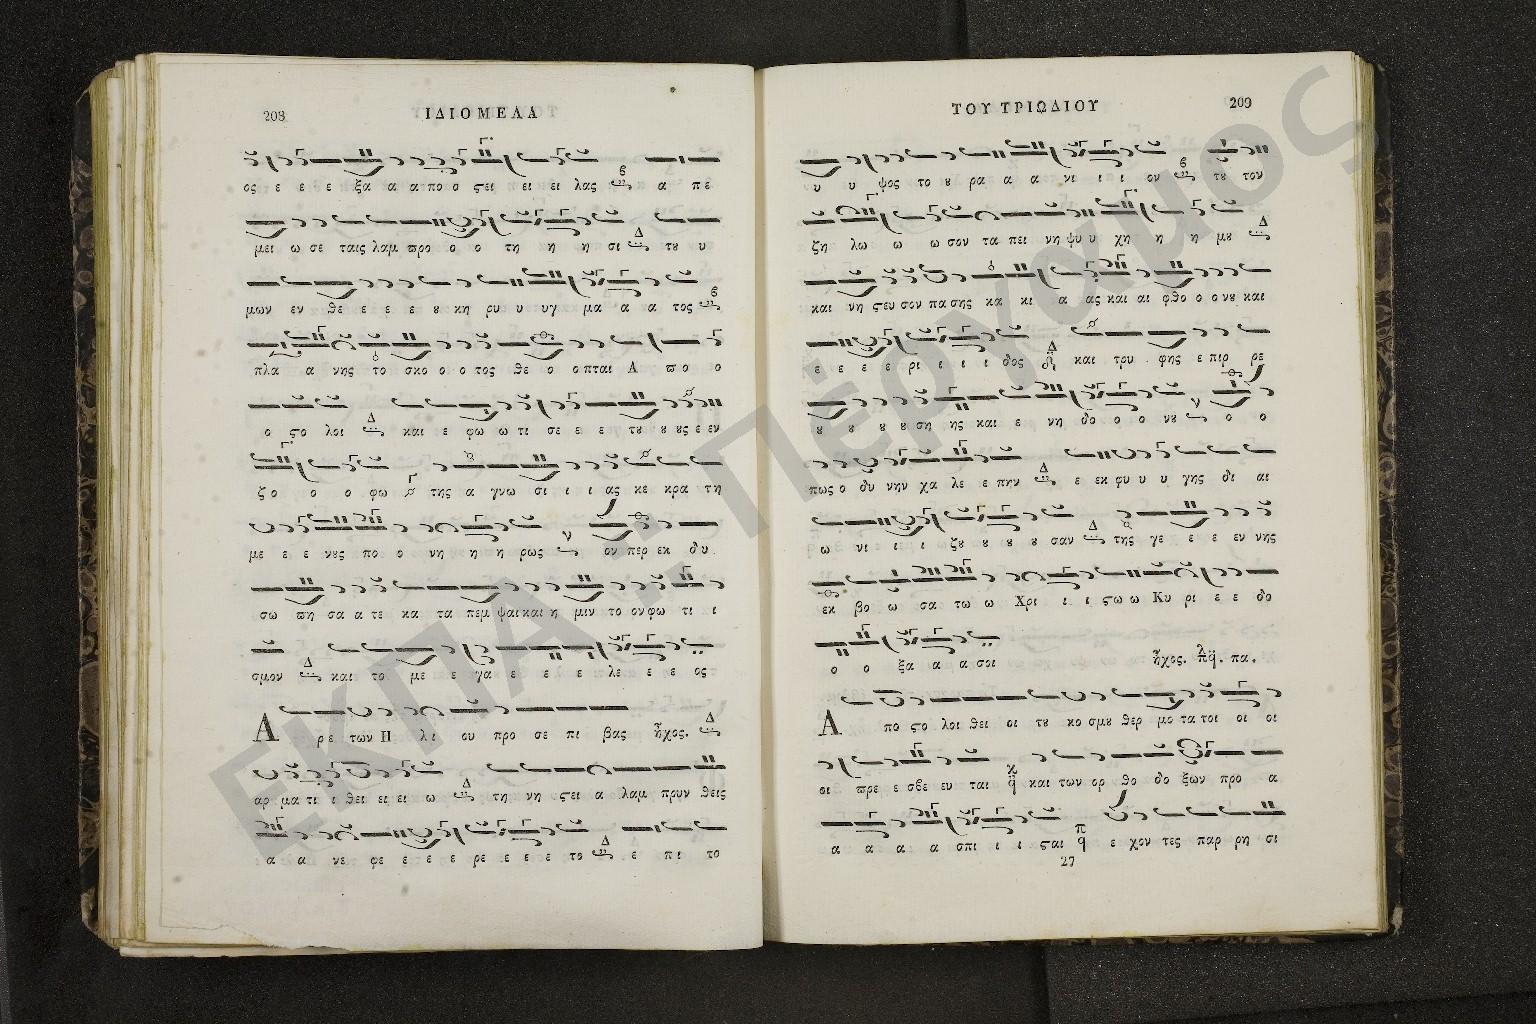 208
ΙΔΙΟΜΕΛΑ
ος ε ε ε ξα α α πο ο ςει ει ει λας α πε
μει ω σε ταις λαμ προ ο ο τη η η σι τȣ υ
μων εν θε ε ε ε ȣ κη ρυ υ υγ μα α α τος
πλα α νης το σκο ο ο τος θε ο ο πται Α πο ο
ο ςο λοι και ε φω ω τι σε ε ε τȣ ȣ ȣς ε εν
ζο ο ο φω της α γνω σι ι ι ας κε κρα τη
με ε ε νȣς πο ο νη η η ρως ον περ εκ δυ
σω πη σα α τε κα τα πεμ ψαι και η μιν το ον φω τι ι
σμον και το με ε γα ε ε ε λε ε ε ος
Α ρε των Η λι ου προ σε πι βας ἦχος.
αρ μα τι ι θει ει ει ω τη νη ςει α λαμ πρυν θεις
α α νε φε ε ε ε ρε ε ε ε το ε πι το
ΤΟΥ ΤΡΙΩΔΙΟΥ
209
υ υ ψος το ȣ ρα α α νι ι ι ον τȣ τον
ζη λω ω ω σον τα πει νη ψυ υ χη η η μȣ
και νη ςευ σον πα σης κα κι α ας και αι φθο ο ο νȣ και
ε ε ε ε ρι ι ι ι δος και τρυ φης ε πιρ ρε
ȣ ȣ ȣ ȣ ση ης και ε νη δο ο ο νȣ ο ο
πως ο δυ νην χα λε ε πην ε εκ φυ υ υ γης δι αι
ω νι ι ι ι ζȣ ȣ ȣ ȣ σαν της γε ε ε εν νης
εκ βο ω σα τω ω Χρι ι ι ςω ω Κυ ρι ε ε δο
ο ο ξα α α α σοι ἦχος. πλ. πα.
Α πο ςο λοι θει οι τȣ κο σμȣ θερ μο τα τοι οι οι
οι πρε ε σβε ευ ται και των ορ θο δο ξων προ α
α α α α σπι ι ι ςαι ε χον τες παρ ρη σι
27
ΕΚΠΑ - Πέργαμος